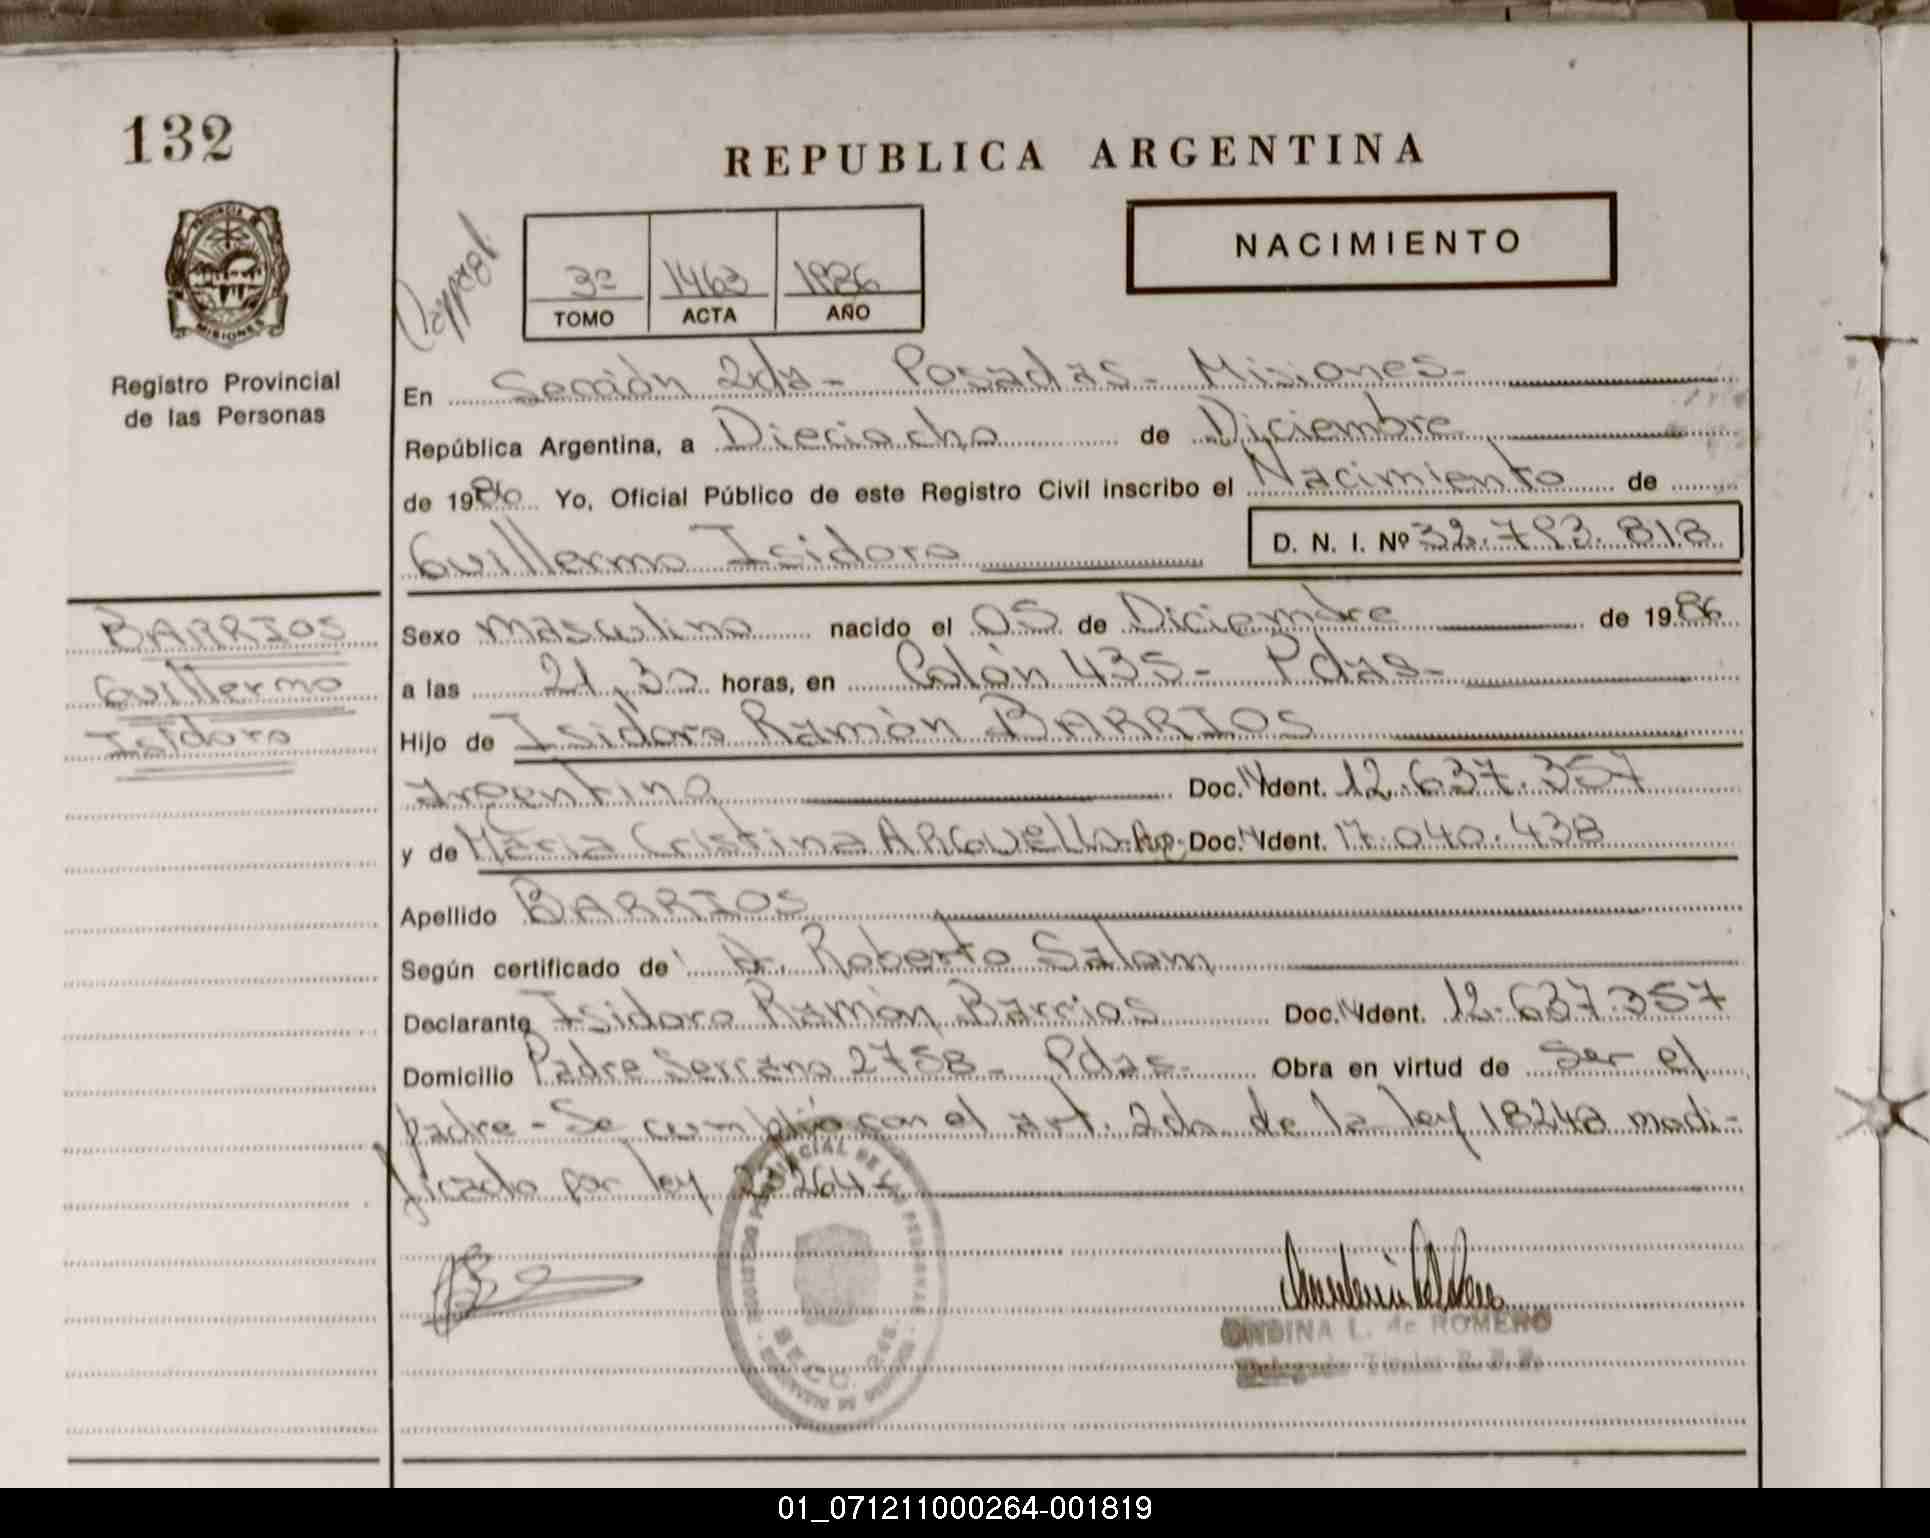 132
REPUBLICA ARGENTINA
NACIMIENTO
3º 1463 1986
TOMO ACTA AÑO
PROVINCIA DE MISIONES
Registro Provincial
de las Personas
En Sección 2da - Posadas - Misiones -
República Argentina, a Dieciocho de Diciembre
de 1986 Yo, Oficial Público de este Registro Civil inscribo el Nacimiento de
Guillermo Isidoro D. N. I. Nº 32.793.818
BARRIOS
Guillermo
Isidoro
Sexo Masculino nacido el 05 de Diciembre de 1986
a las 21,30 horas, en Colón 435 - Pdas -
Hijo de Isidoro Ramón BARRIOS
Argentino Doc. Ident. 12.637.357
y de María Cristina ARGUello - Arg. Doc. Ident. 17.040.438
Apellido BARRIOS
Según certificado de Dr. Roberto Salom
Declarante Isidoro Ramón Barrios Doc. Ident. 12.637.357
Domicilio Padre Serrano 2758 - Pdas - Obra en virtud de ser el
padre - Se cumplió con el art. 2do de la ley 18248 modi-
ficado por ley 23264
REGISTRO PROVINCIAL DE LAS PERSONAS
SECC. 2da.
ONDINA L. de ROMERO
Delegada Titular R. P. P.
01_071211000264-001819